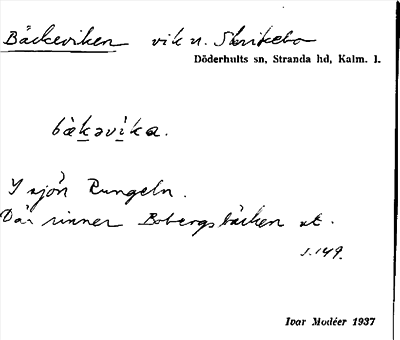 Bäckeviken vik n. Skrikebo
Döderhults sn, Stranda hd, Kalm. l.
bàkəvìka.
I sjön Rungeln.
Där rinner Bobergsbäcken ut.
s. 149.
Ivar Modéer 1937